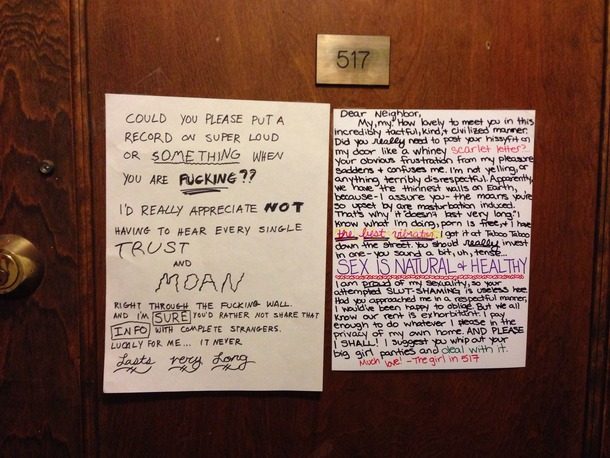 517
COULD YOU PLEASE PUT A
RECORD ON SUPER LOUD
OR SOMETHING WHEN
YOU ARE FUCKING??
I'D REALLY APPRECIATE NOT
HAVING TO HEAR EVERY SINGLE
TRUST
AND
MOAN
RIGHT THROUGH THE FUCKING WALL.
AND I'M SURE YOU'D RATHER NOT SHARE THAT
INFO WITH COMPLETE STRANGERS.
LUCKLY FOR ME... IT NEVER
Lasts very Long
Dear Neighbor,
My, my! How lovely to meet you in this
incredibly tactful, kind, & civilized manner.
Did you really need to post your hissyfit on
my door like a whiney scarlet letter?
Your obvious frustration from my pleasure
saddens & confuses me. I'm not yelling, or
anything terribly disrespectful. Apparently,
we have the thinnest walls on Earth,
because - I assure you - the moans you're
so upset by are masturbation induced.
That's why it "doesn't last very long." I
know what I'm doing, porn is free, & I have
the best vibrator. I got it at Taboo Taboo
down the street. You should really invest
in one - you sound a bit, uh, tense...
SEX IS NATURAL & HEALTHY
I am proud of my sexuality, so your
attempted SLUT-SHAMING is useless here.
Had you approached me in a respectful manner,
I would've been happy to oblige. But we all
know our rent is exhorbitant. I pay
enough to do whatever I please in the
privacy of my own home. AND PLEASE
I SHALL! I suggest you whip out your
big girl panties and deal with it.
Much love! - The girl in 517